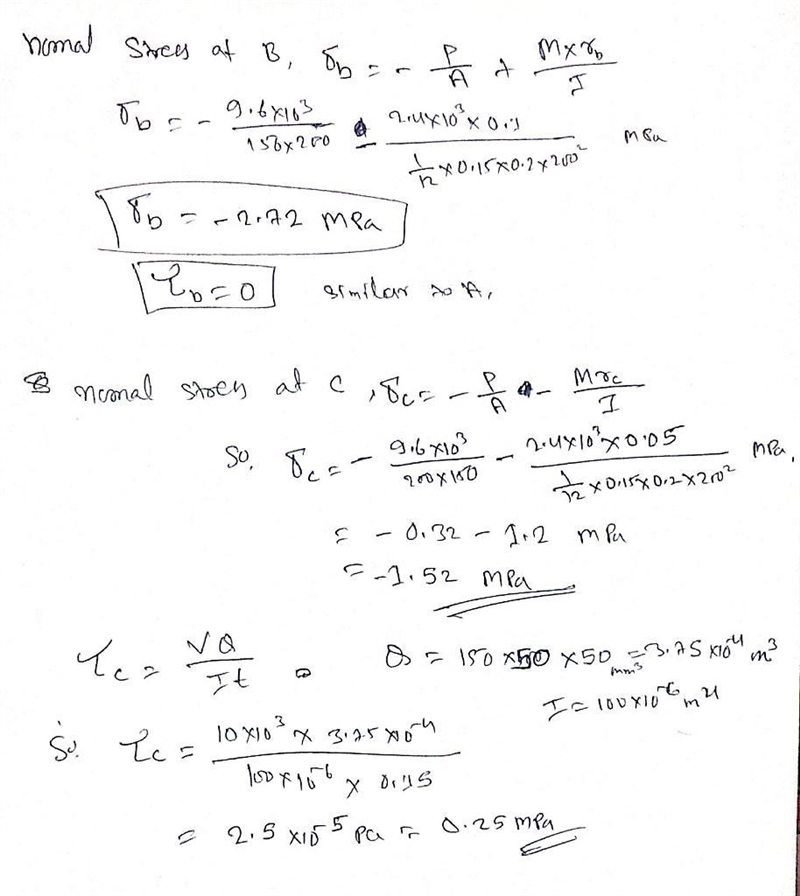 Normal Stress at B, σb = - P/A + M×rb/I
σb = - 9.6×10³/150×200 - 2.4×10³×0.1/(1/12 ×0.15×0.2×200²) MPa
σb = -2.72 MPa
τb = 0 similar to A,
normal stress at C, σc = - P/A - Mrc/I
So, σc = - 9.6×10³/200×150 - 2.4×10³×0.05/(1/12 ×0.15×0.2×200²) MPa,
= - 0.32 - 1.2 MPa
= -1.52 MPa
τc = VQ/It Q = 150×50×50 mm³ = 3.75×10⁻⁴ m³
I = 100×10⁻⁶ m⁴
So. τc = 10×10³ × 3.75×10⁻⁴/100×10⁻⁶ × 0.15
= 2.5×10⁵ Pa = 0.25 MPa